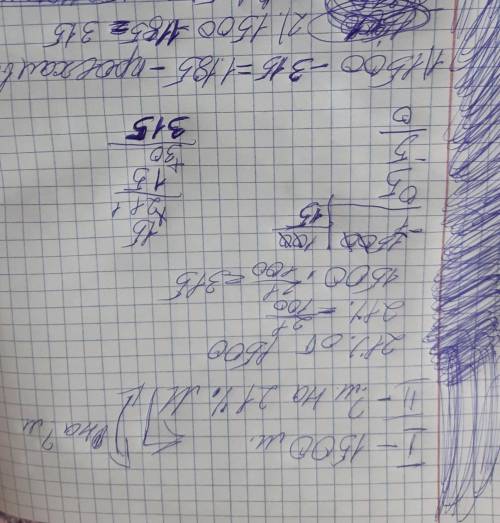 I – 1500 м.
II – ? м на 21% м
на ? м
21% от 1500
21% = 21/100
1500 · 21/100 = 315
1500 | 100
15
05
5
0
15
× 21
15
+ 30
315
1) 1500 – 315 = 1185 – проехали
2) 1500 – 1185 = 315